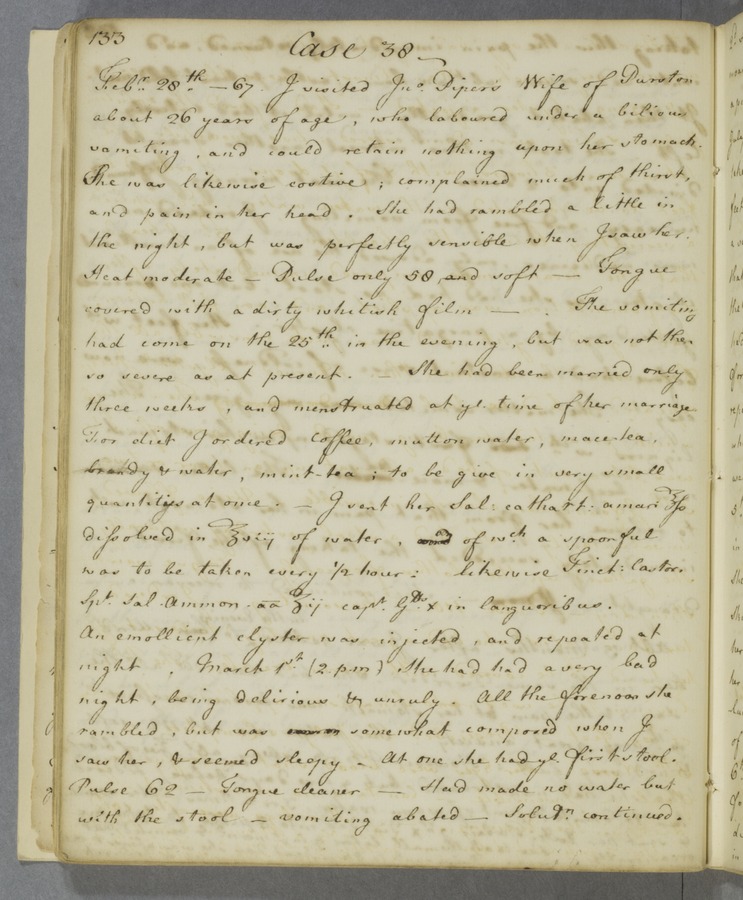 133
Case 38
Feb.ʸ 28th — 67. I visited Jno. Piper's Wife of Purston
about 26 years of age, who laboured under a bilious
vomiting, and could retain nothing upon her stomach.
She was likewise costive; complained much of thirst,
and pain in her head. She had rambled a little in
the night, but was perfectly sensible when I saw her.
Heat moderate — Pulse only 58 and soft — Tongue
covered with a dirty whitish film — . The vomiting
had come on the 25th in the evening, but was not then
so severe as at present. — She had been married only
three weeks, and menstruated at yt. time of her marriage
For diet I ordered Coffee, mutton water, mace-tea,
brandy & water, mint-tea; to be give in very small
quantitys at once. — I sent her Sal: cathart: amar: ℥ſs
dissolved in ℥viij of water, of wch a spoonful
was to be taken every 1/2 hour: likewise Tinct: Castor:
Spt. Sal. Ammon. aā ʒij capt. Gtts x in languoribus.
An emollient clyster was injected, and repeated at
night. March 1st (2 p.m) She had had a very bad
night, being delirious & unruly. All the forenoon she
rambled, but was somewhat composed when I
saw her, & seemed sleepy – At one she had ye. first stool.
Pulse 62 — Tongue cleaner — Had made no water but
with the stool — vomiting abated — Solutn continued.